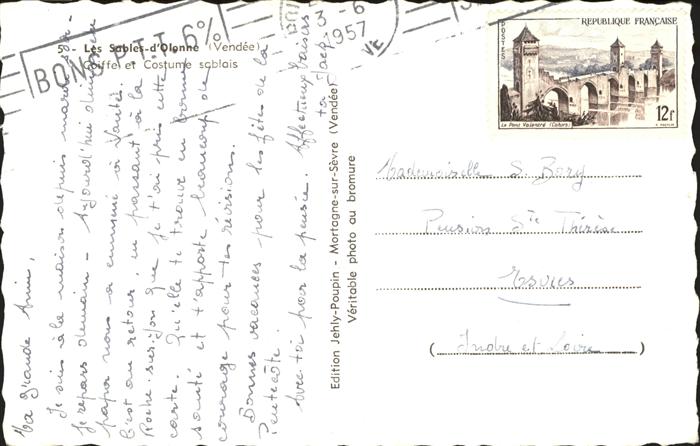 5 - Les Sables-d'Olonne (Vendée)
Coiffe et Costume sablais
BONS P.T.T 6%
3 - 6
1957
RÉPUBLIQUE FRANÇAISE
POSTES
Le Pont Valentré (Cahors)
12F
Ma grande Mimi,
Je suis à la maison depuis mardi soir -
Je repars demain - Aujourd'hui dimanche
papa nous a emmené à
C'est au retour, en passant à la
Roche-sur-Yon que je t'ai pris cette
carte. Qu'elle te trouve en bonne
santé et t'apporte beaucoup de
courage pour tes révisions.
Bonnes vacances pour les fêtes de la
Pentecôte.
Avec toi par la pensée. Affectueux baisers
Edition Jehly-Poupin - Mortagne-sur-Sèvre (Vendée)
Véritable photo au bromure
Mademoiselle S. Bory
Pension Ste Thérèse
Esvres
(Indre et Loire)